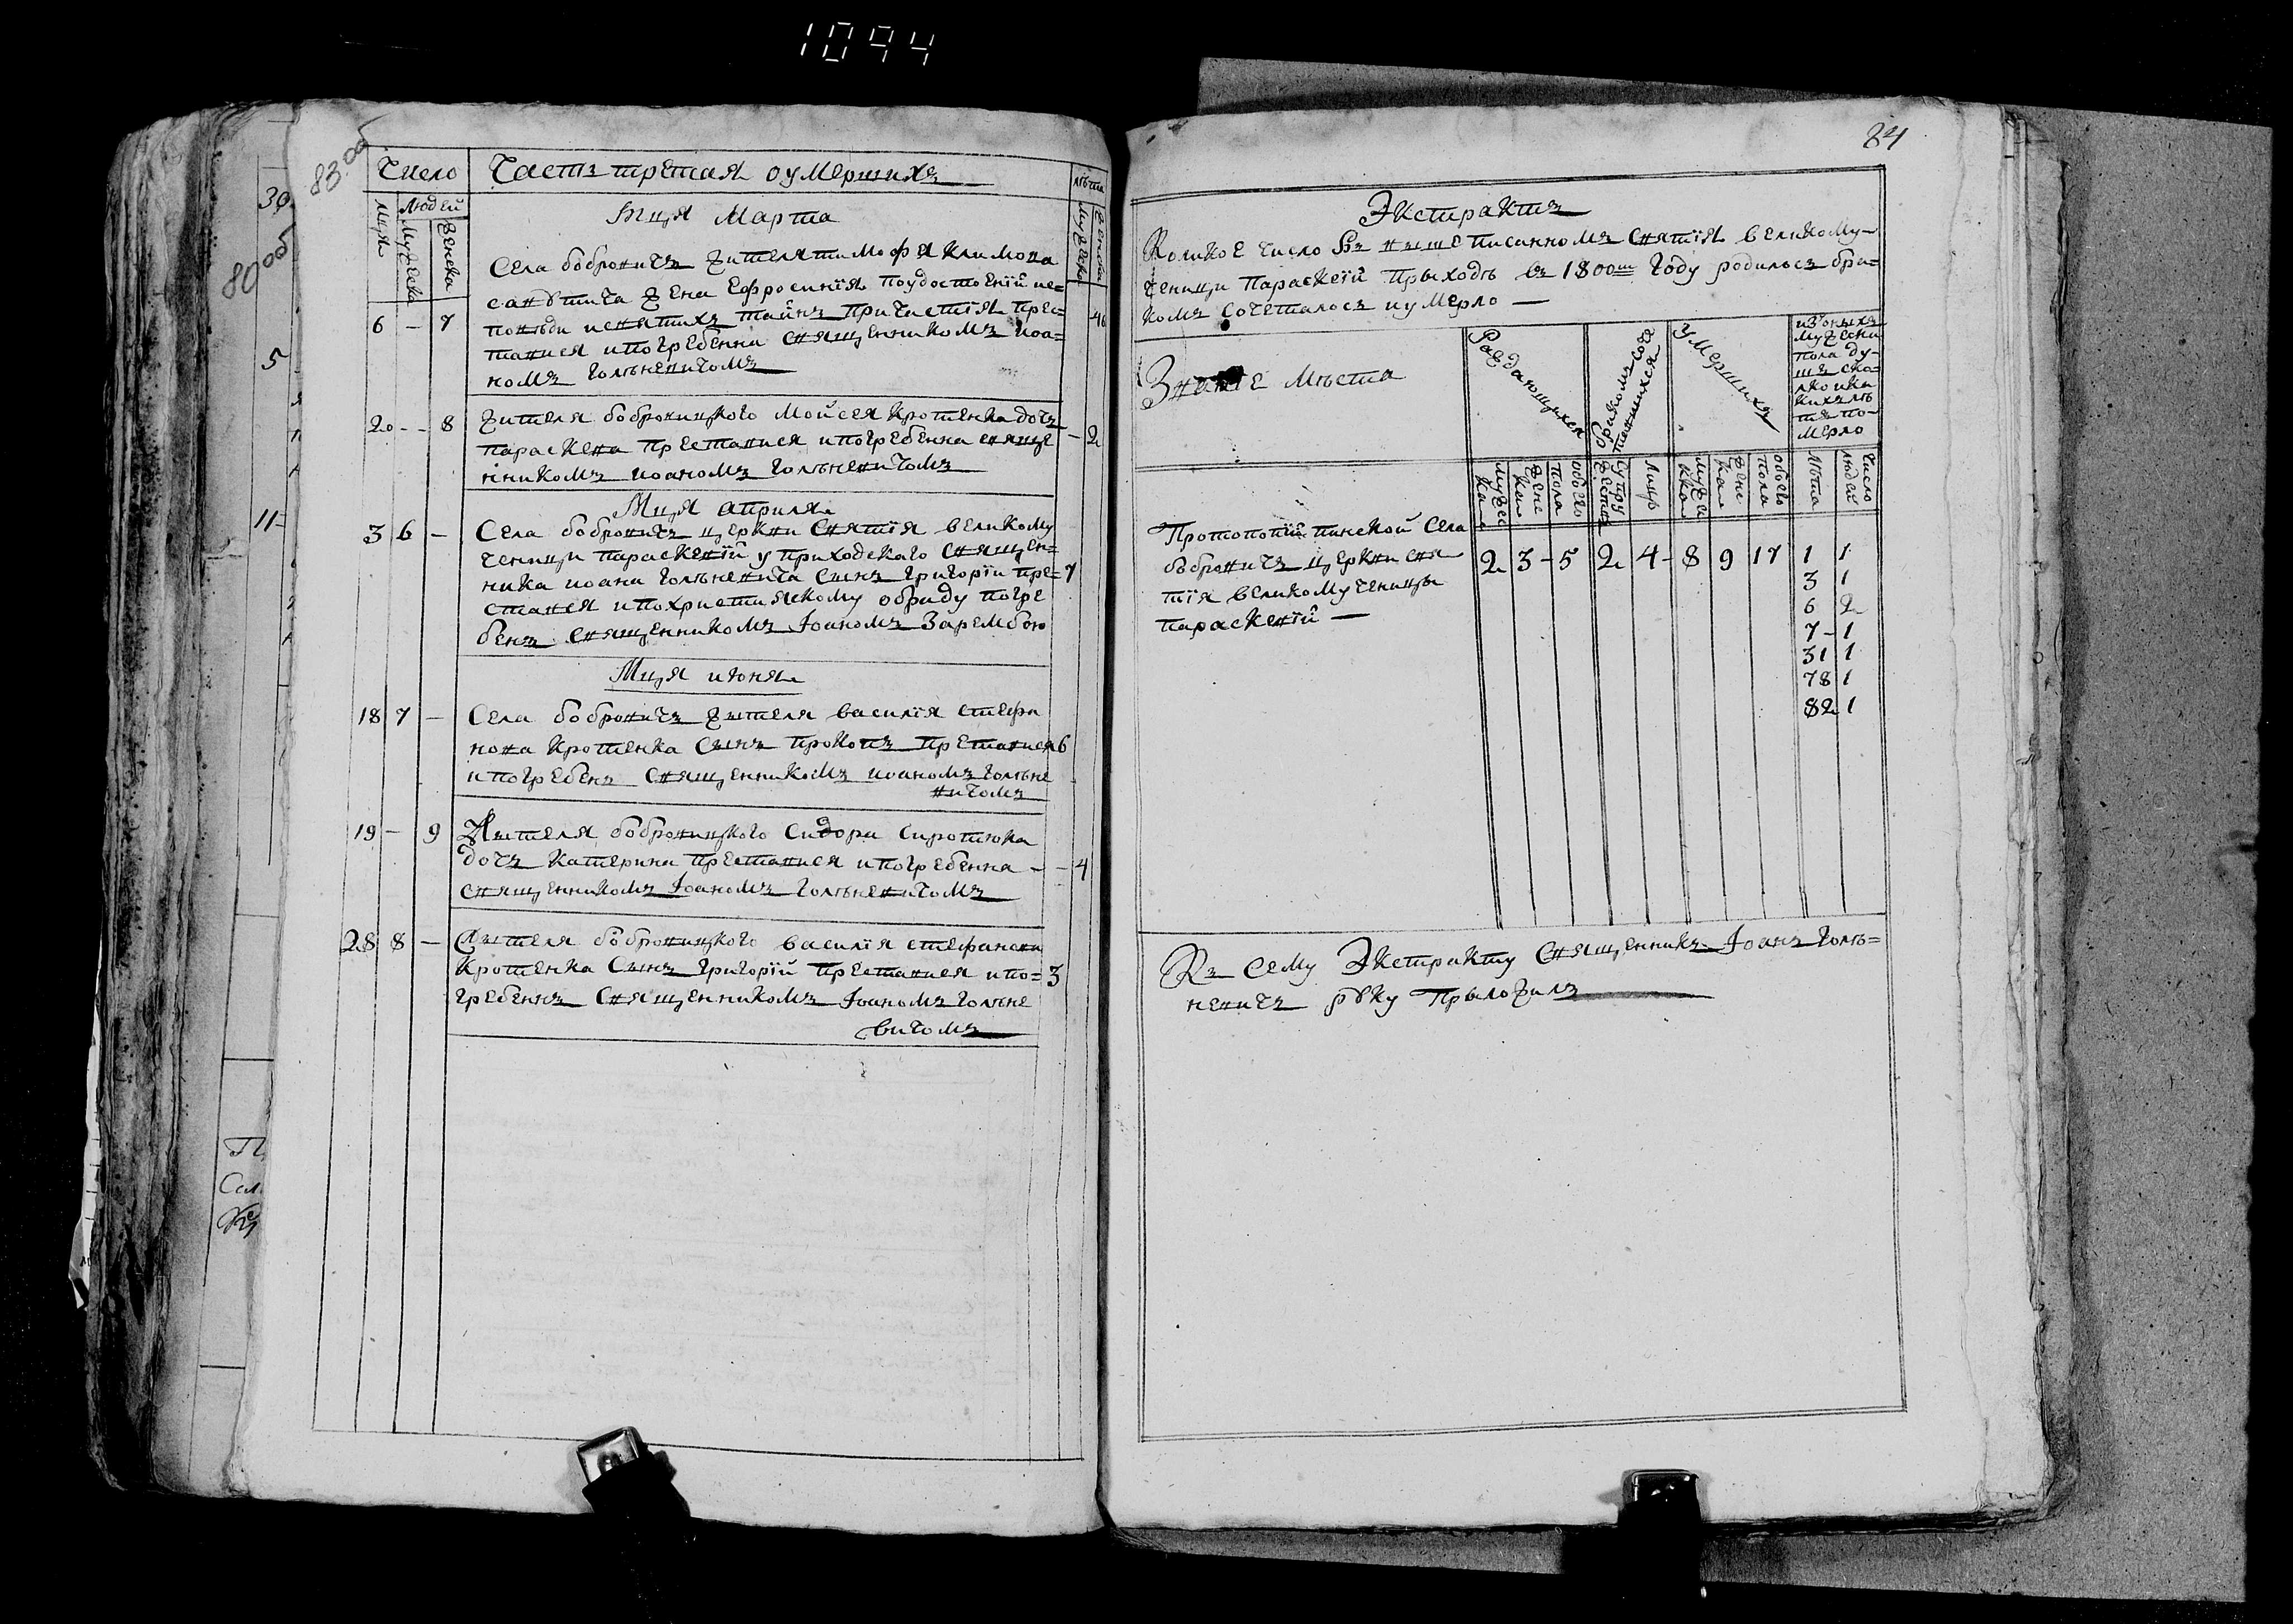 1094
83 об
Число
Часть третая о умерших
лѣта
Мця
Людей
Мужеска
Женска
Мужеска
Женска
Мця Марта
6 - 7
Села бобровичъ жителя тимофея климова
жена Ефросиния поудостоении ис=
поведи исвятихъ таинъ причастия прес=
тавися ипогребенна священникомъ иоа=
номъ Голѣневичомъ
46
20 - - 8
жителя бобровицкого Мойсея кротенка дочъ
параскева преставися ипогребенна свяще
нникомъ иоаномъ Голѣневичомъ
- 2
Мця априля
3 6 -
Села бобровичъ церкви Святия великому
ченици параскевий у приходского Священ=
ника иоанн Голѣневича Сынъ григории пре=
ставися ипохристиянскому обряду погре
бенъ Священникомъ Иоаномъ Зарембою
7
Мця июня
18 7 -
Села бобровичъ жителя василия стефа
нова кротенка Сынъ прокопъ преставися
ипогребенъ Священникомъ иоаномъ голѣне
вичомъ
6
19 - 9
Жителя бобровицкого Сидора Сиротюка
дочъ катерина преставися ипогребенна -
Священникомъ Иоаномъ голѣневичомъ
- 4
28 8 -
Жителя бобровицкого василия стефанова
кротенка Сынъ григорий преставися ипо=
гребеннъ Священникомъ Иоаномъ голѣне
вичомъ
3
80 об
30
5
11
84
Экстрактъ
Коликое число въ вышеписанномъ Святия великому-
ченици параскевий прыходѣ въ 1800м Году родилось бра=
комъ сочеталось иумерло —
Звание мѣста
Раждающихся
бракомъ соче
тавшихся
Умершихъ
изоныхъ
мужеска
пола ду-
шъ ско=
лко ика
кихъ лѣ
тъ по-
мерло
мужес
каго
жене
каго
обоего
пола
Супру
жества
Лицъ
мужес
каго
женс
каго
обоего
пола
лѣта
Число
людей
Протопопии пинской Села
бобровичъ церкви свя
тия великомученицы
параскевий —
2 3 - 5 2 4 - 8 9 17 1 1
3 1
6 2
7 - 1
31 1
78 1
82 1
Къ сему Экстракту Священникъ Иоанъ Голѣ=
невичъ руку прыложилъ